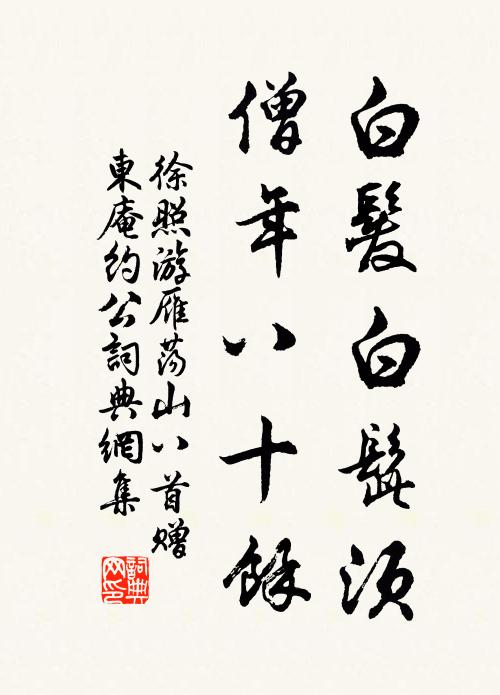 白髮白髭须
僧年八十餘
徐照游雁荡山八首赠
東庵約公詞典網集
詞典
网印